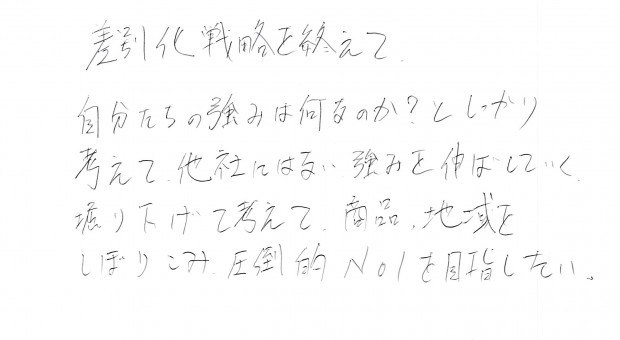 差別化戦略を終えて.
自分たちの強みは何なのか?としっかり
考えて.他社にはない強みを伸ばしていく.
堀り下げて考えて.商品.地域を
しぼりこみ.圧倒的No1を目指したい。